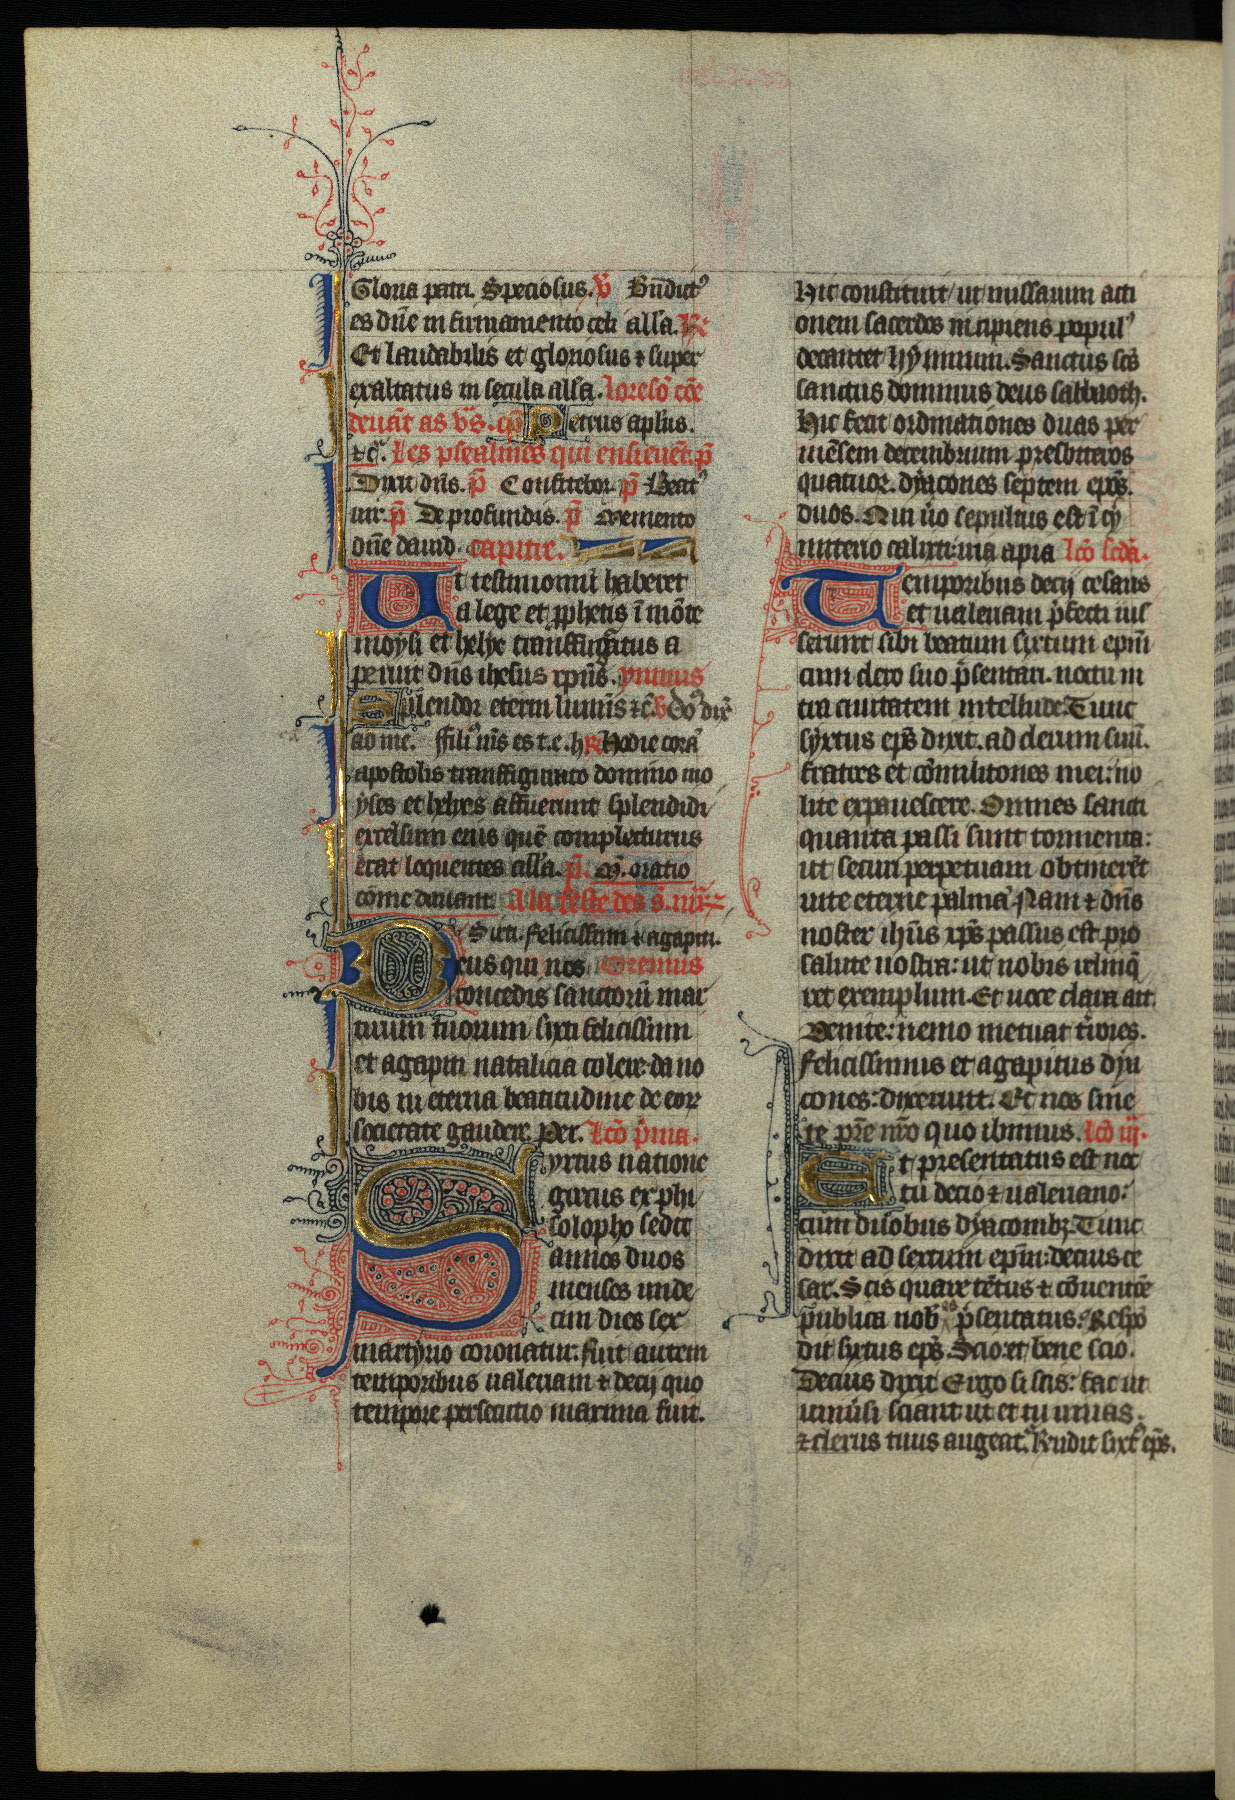 Gloria patri. Speciosus. v̄ Bn̄dictꝰ
es dn̄e in firmamento celi all'a. R̄.
Et laudabilis et gloriosus ⁊ super
exaltatus in secula all'a.
Petrus apl'us.
⁊c̄. Les psealmes qui ensieuēt. p̄
Dixit dn̄s. p̄ Confitebor p̄ Beatꝰ
uir. p̄ De profundis. p̄ Memento
dn̄e dauid. capitle.
Ut testimoniū haberet
a lege et ꝓphetis ī mōte
moysi et helye transfiguratus a
peruit dn̄s ihesus xpūs. ymnus
Splendor eterni luminis ⁊c̄. v̄ Dn̄s dix̄
ad me. ffiliꝰ m̄s es t. e. h. R̄ Hodie corā
apostolis transfigurato domino mo
yses et helyes affuerunt splendidi
excelsum eius quē complecturus
erat loquentes all'a. p̄. M̄. oratio
cōme deuant. A la feste des s.
Sixti. felicissimi ⁊ agapiti.
Deus qui nos Oremus
concedis sanctorū mar
tirum tuorum sixti felicissimi
et agapiti natalicia colere: da no
bis in eterna beatitudine de eorꝝ
societate gaudere. Per. Lcō p̄ma.
Syxtus natione
grecus ex phi
losopho sedit
annos duos
menses unde
cim dies sex
martyrio coronatur: fuit autem
temporibus ualeriani ⁊ decij quo
tempore persecutio maxima fuit.
Hic constituit ut missarum acti
onem sacerdos incipiens populꝰ
decantet hymnum. Sanctus scs̄
sanctus dominus deus sabbaoth.
Hic fecit ordinationes duas per
mēsem decembrium presbiteros
quatuor. dyacones septem eps̄.
duos. Qui ūo sepultus est ī cy
miterio calixti: uia apia Lcō scdā.
Temporibus decij cesaris
et ualeriani p̄fecti ius
serunt sibi beatum sixtum epm̄
cum clero suo p̄sentari. noctu in
tra ciuitatem in tellude. Tunc
syxtus eps̄ dixit. ad clerum suū.
fratres et cōmilitones mei: no
lite expauescere. Omnes sancti
quanta passi sunt tormenta:
ut securi perpetuam obtinerēt
uite eterne palmā. Nam ⁊ dn̄s
noster ihūs xp̄s passus est pro
salute nostra: ut nobis relinq̄
ret exemplum. Et uoce clara ait.
Venite: nemo metuat t̄rores.
felicissimus et agapitus dya
cones: dixerunt. Et nos sine
te pr̄e nr̄o quo ibimus. Lcō iij.
Et presentatus est noc
tu decio ⁊ ualeriano:
cum duobus dyaconibꝫ. Tunc
dixit ad sextum epm̄: decius ce
sar. Scis quare tētus ⁊ cōuentꝰ
publica nobꝭ p̄sentatus: Respō
dit syxtus eps̄. Scio: et bene scio.
Decius dixit Ergo si scis: fac ut
uniūsi sciant ut et tu uiuas.
⁊ clerus tuus augeat̄. Rn̄dit sixtꝰ eps̄.